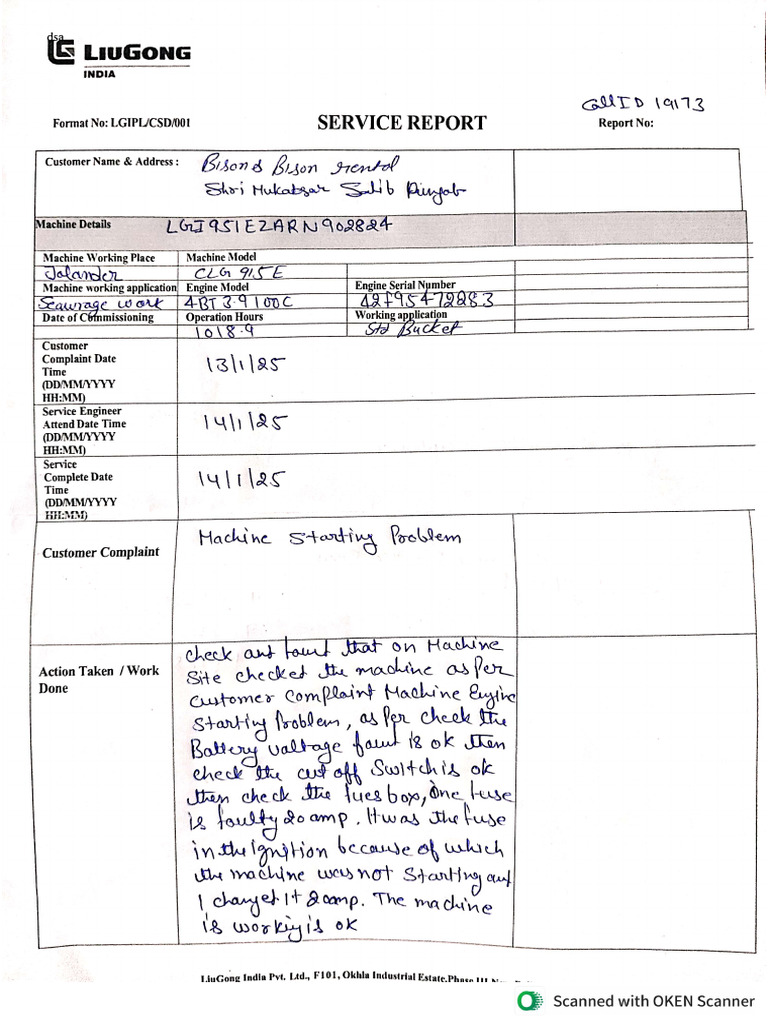 dsa
LG LIUGONG
INDIA
Call ID 19173
Format No: LGIPL/CSD/001
SERVICE REPORT
Report No:
Customer Name & Address :
Bison & Bison rental
Shri Mukatsar Sahib Punjab
Machine Details
LGI951EZARN902824
Machine Working Place
Machine Model
Jalander
CLG 915E
Machine working application
Engine Model
Engine Serial Number
Seawrage work
4BT 3.9 100C
42F95472283
Date of Commissioning
Operation Hours
Working application
1018.9
Std Bucket
Customer
Complaint Date
Time
(DD/MM/YYYY
HH:MM)
13/1/25
Service Engineer
Attend Date Time
(DD/MM/YYYY
HH:MM)
14/1/25
Service
Complete Date
Time
(DD/MM/YYYY
HH:MM)
14/1/25
Customer Complaint
Machine Starting Problem
Action Taken / Work
Done
check and faunt that on Machine
Site checket the machine as per
customer complaint Machine Engine
Starting Problem, as per check the
Battery valtage faunt is ok then
check the cut off Switch is ok
then check the fues box, One fuse
is faulty 20 amp. It was the fuse
in the ignition because of which
the machine was not Starting and
I changet 1t 20amp. The machine
is workiy is ok
LiuGong India Pvt. Ltd., F101, Okhla Industrial Estate, Phase III
Scanned with OKEN Scanner